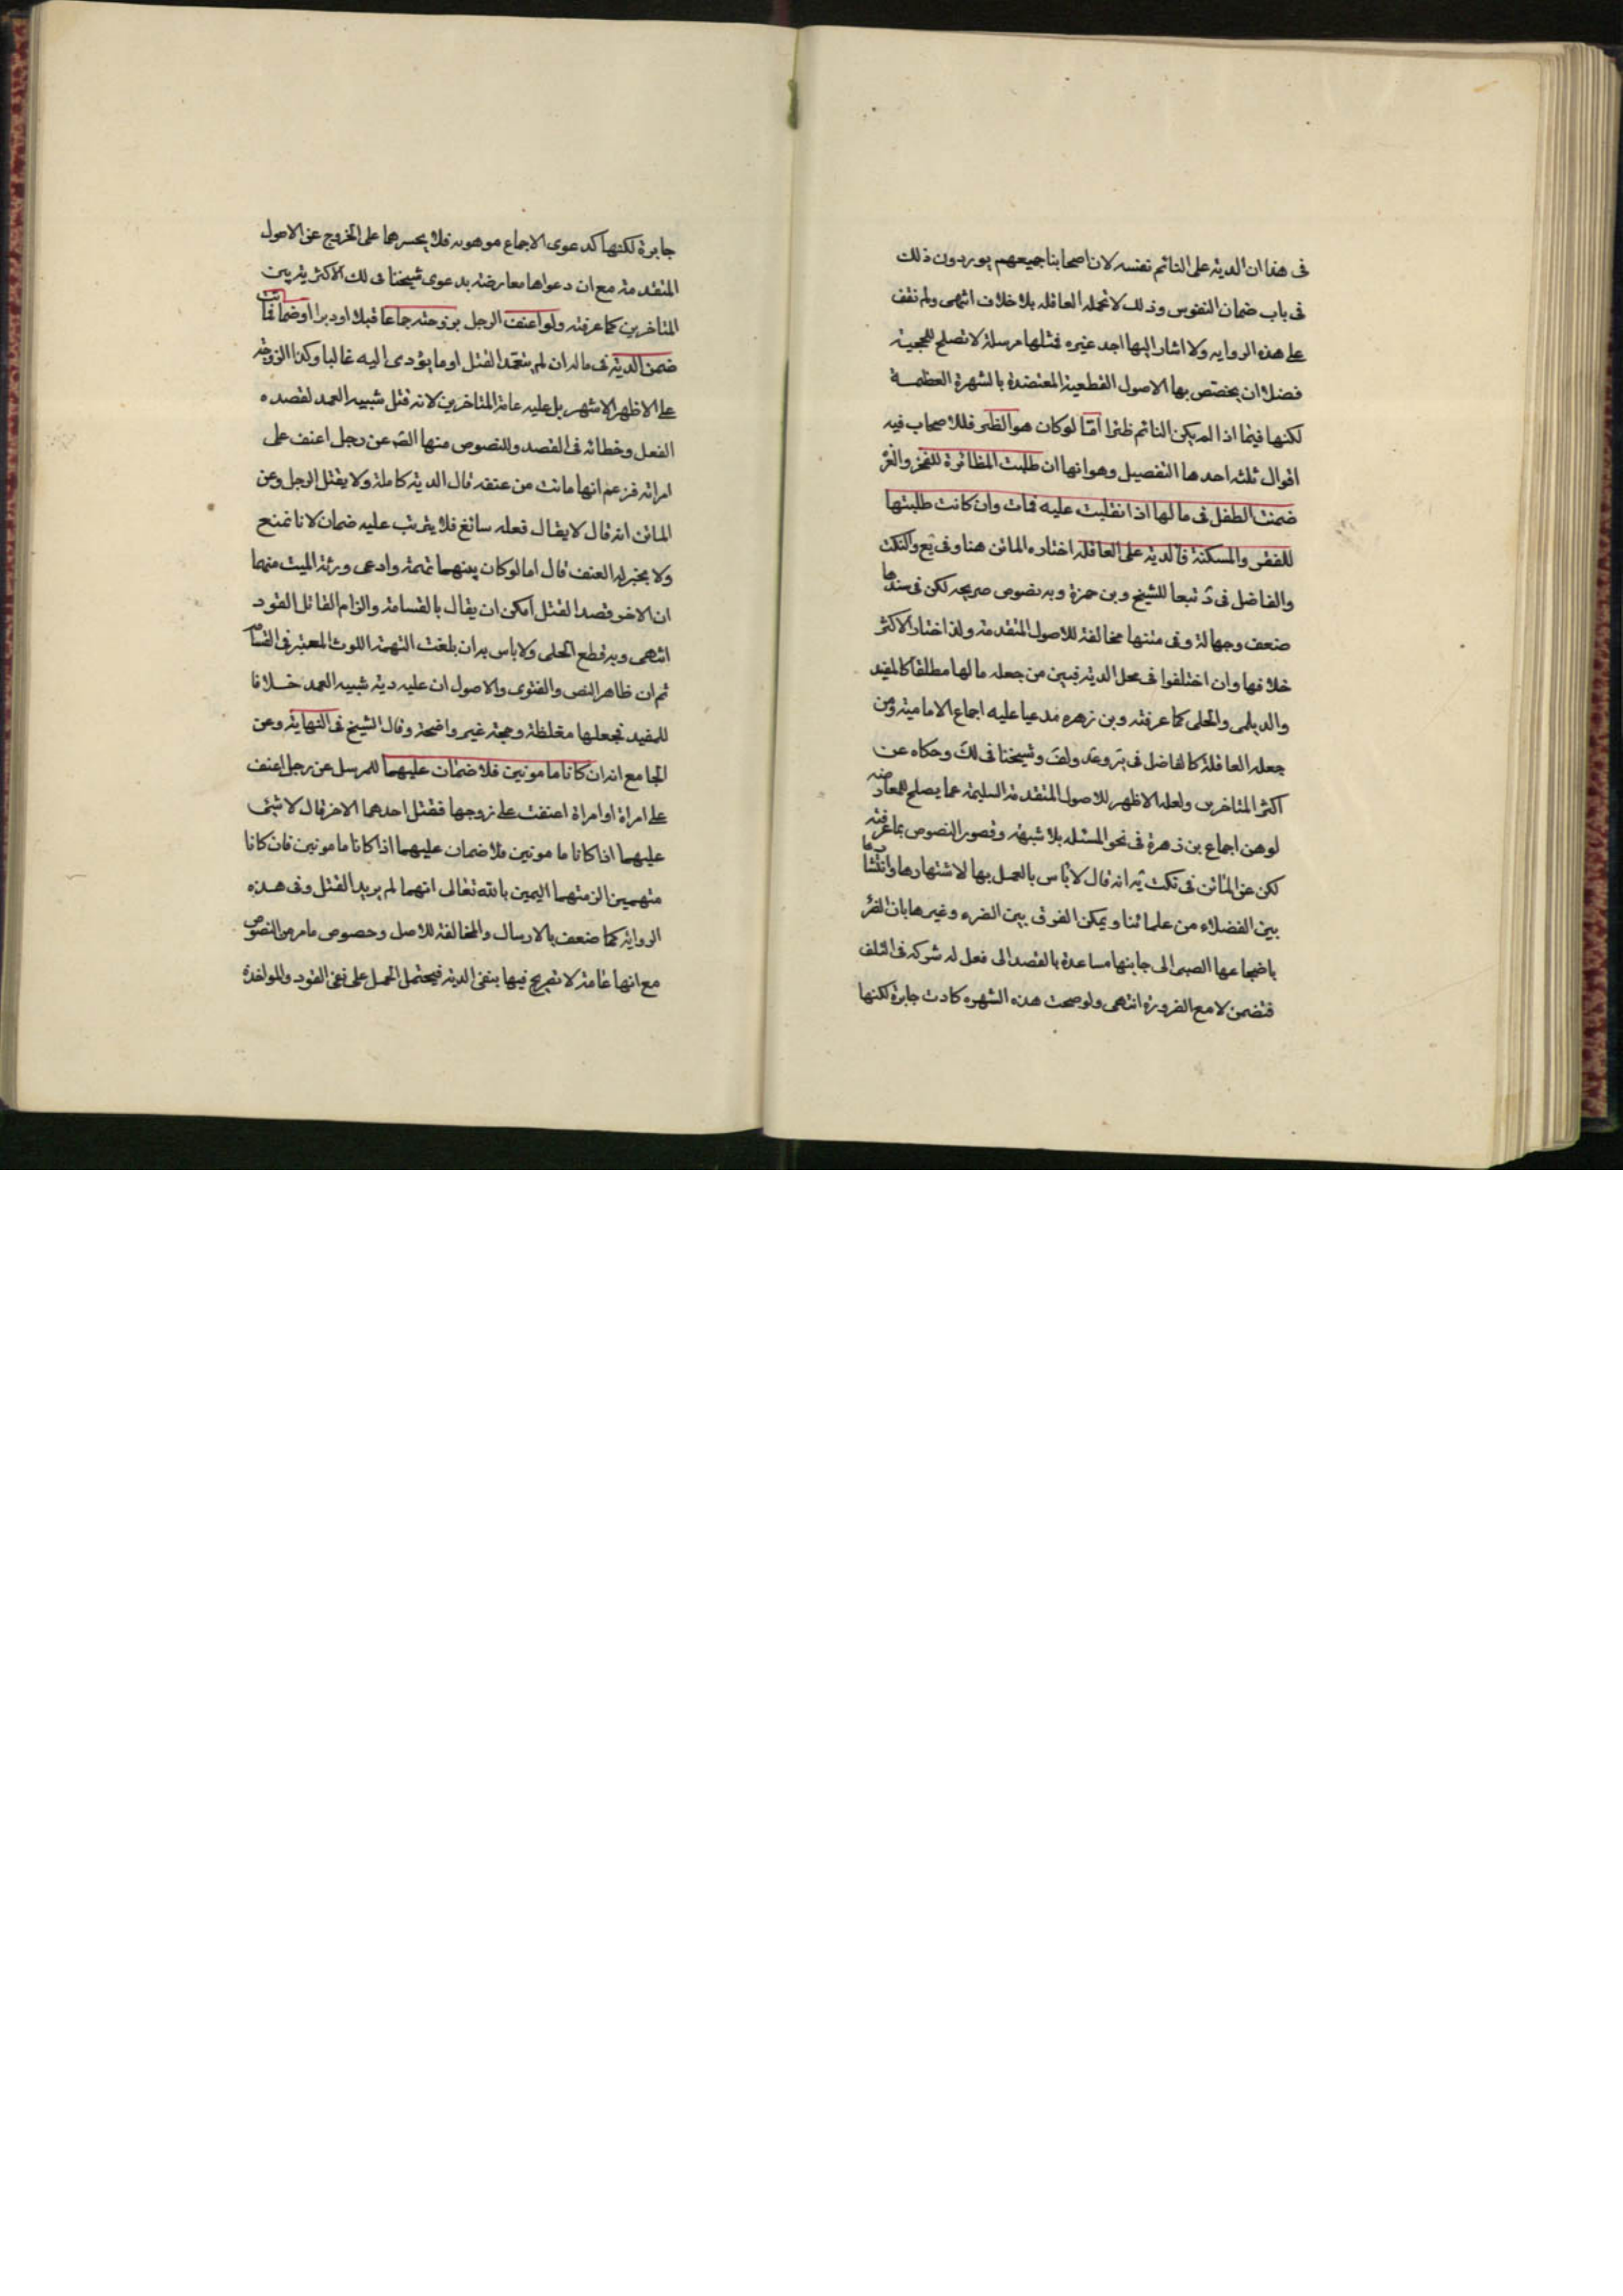 فى هذا ان الدية على النائم نفسه لان اصحابنا جميعهم يوردون ذلك
فى باب ضمان النفوس وذلك لا تحمله العاقله بلا خلاف انتهى ولم نقف
على هذه الروايه ولا اشار اليها احد غيره فمثلها مرسلة لا تصلح للحجية
فضلا ان يخصص بها الاصول القطعية المعتضدة بالشهرة العظيمة
لكنها فيما اذا لم يكن النائم ظئرا امّا لو كان هو الظئر فللاصحاب فيه
اقوال ثلثه احدها التفصيل وهو انها ان طلبت المظائرة للفخر والعز
ضمنت الطفل فى مالها اذا انقلبت عليه فمات وان كانت طلبتها
للفقر والمسكنة فالدية على العاقلة اختاره الماتن هنا وفى يع والنكت
والفاضل فى د تبعا للشيخ وبن حمزة وبه نصوص صريحه لكن فى سندها
ضعف وجهالة وفى متنها مخالفة للاصول المتقدمة ولذا اختار الاكثر
خلافها وان اختلفوا فى محل الدية فبين من جعله مالها مطلقا كالمفيد
والديلمى والحلى كما عرفته وبن زهره مدعيا عليه اجماع الامامية ومن
جعله العاقلة كالفاضل فى ير وعد ولف وشيخنا فى لك وحكاه عن
اكثر المتاخرين ولعله الاظهر للاصول المتقدمة السليمة عما يصلح للمعارضه
لوهن اجماع بن زهرة فى نحو المسئله بلا شبهة وقصور النصوص بما عرفته
لكن عن الماتن فى نكت يه انه قال لا باس بالعمل بها لاشتهارها وانتشارها
بين الفضلاء من علمائنا ويمكن الفرق بين الضرء وغيرها بان الضر
باضجاعها الصبى الى جانبها مساعدة بالقصد الى فعل له شركه فى التلف
فتضمن لا مع الضرورة انتهى ولو صحت هذه الشهره كادت جابرة لكنها
جابرة لكنها كدعوى الاجماع موهونه فلا يجسر بهما على الخروج عن الاصول
المتقدمة مع ان دعواها معارضة بدعوى شيخنا فى لك الاكثرية بين
المتاخرين كما عرفته ولو اعنف الرجل بزوجته جماعا قبلا او دبرا او ضما فماتت
ضمن الدية فى ماله ان لم يتعمد القتل او ما يؤدى اليه غالبا وكذا الزوجة
على الاظهر الاشهر بل عليه عامة المتاخرين لانه قتل شبيه العمد لقصده
الفعل وخطائه فى القصد وللنصوص منها الصّ عن رجل اعنف على
امراته فزعم انها ماتت من عنفه قال الدية كاملة ولا يقتل الرجل وعن
الماتن انه قال لا يقال فعله سائغ فلا يترتب عليه ضمان لانا نمنع
ولا يخبر له العنف قال اما لو كان بينهما تهمة وادعى ورثة الميت منهما
ان الاخر قصد القتل امكن ان يقال بالقسامة والزام القاتل القود
انتهى وبه قطع الحلى ولا باس به ان بلغت التهمة اللوث المعتبر فى القسامة
ثم ان ظاهر النص والفتوى والاصول ان عليه دية شبيه العمد خلافا
للمفيد فجعلها مغلظة وحجته غير واضحة وقال الشيخ فى النهاية وعن
الجامع انه ان كانا مامونين فلا ضمان عليهما للمرسل عن رجل اعنف
على امراة او امراة اعنفت على زوجها فقتل احدهما الاخر قال لا شئ
عليهما اذا كانا مامونين فلا ضمان عليهما اذا كانا مامونين فان كانا
متهمين الزمتهما اليمين بالله تعالى انهما لم يريد القتل وفى هذه
الرواية كما ضعف بالارسال والمخالفة للاصل وخصوص ما مر من النصوص
مع انها عامة لا تصريح فيها بنفى الدية فيحتمل الحمل على نفى القود والمواخذة